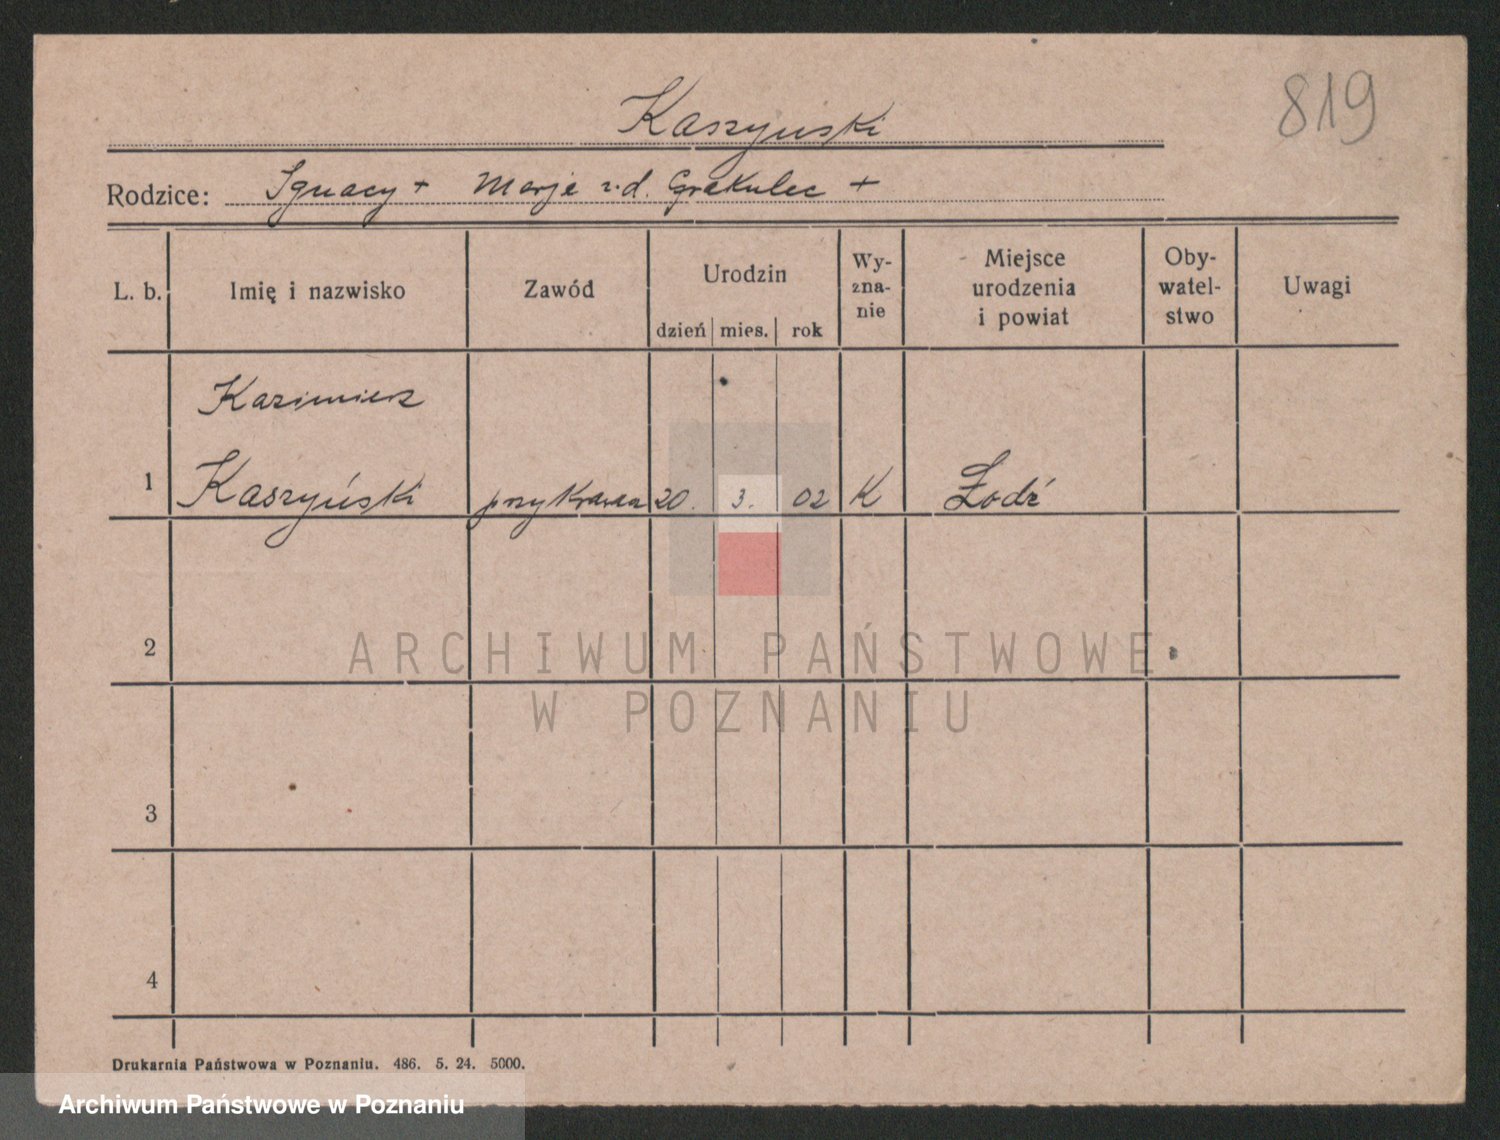 819
Kaszyński
Rodzice: Ignacy + Marje z. d. Grakulec +
L. b. Imię i nazwisko Zawód Urodzin dzień mies. rok Wy- zna- nie Miejsce urodzenia i powiat Oby- watel- stwo Uwagi
Kazimierz
1 Kaszyński 20. 3. 02 K Łodź
2
ARCHIWUM PAŃSTWOWE
W POZNANIU
3
4
Drukarnia Państwowa w Poznaniu. 486. 5. 24. 5000.
Archiwum Państwowe w Poznaniu